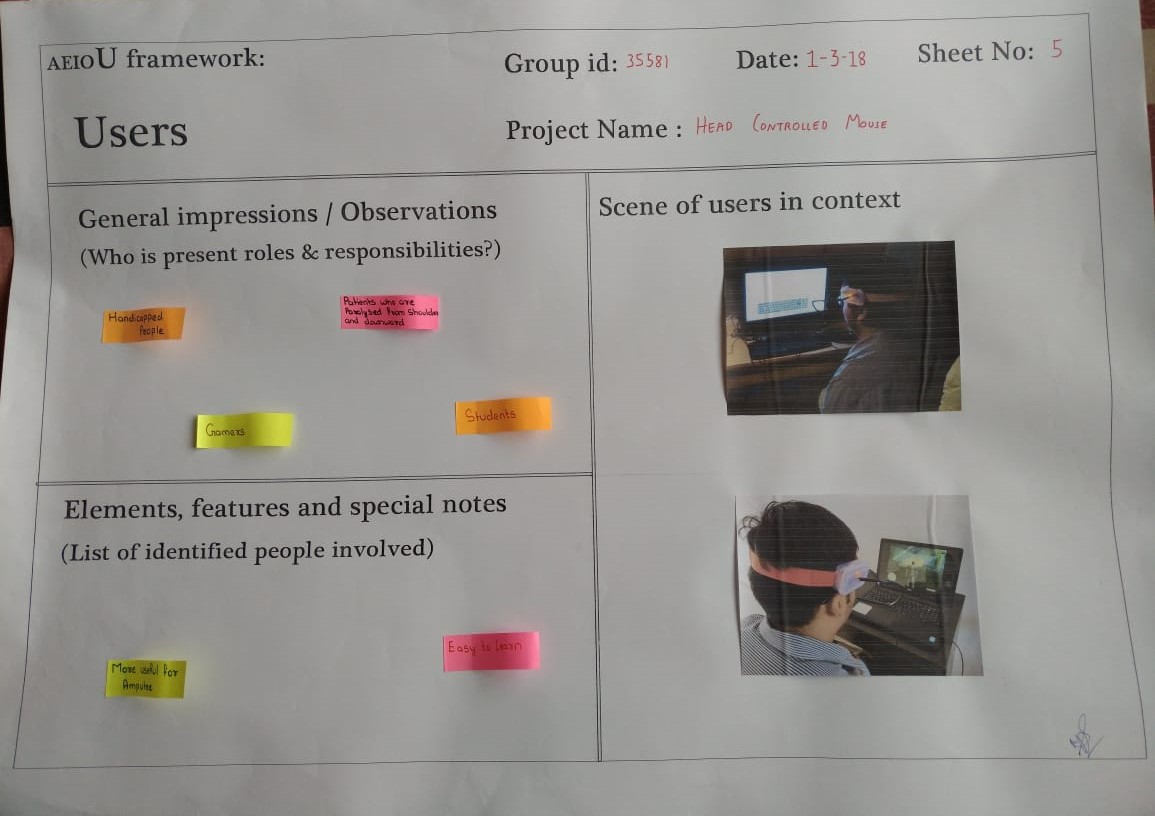 AEIOU framework:
Group id: 35581
Date: 1-3-18
Sheet No: 5
Users
Project Name : HEAD CONTROLLED MOUSE
General impressions / Observations
(Who is present roles & responsibilities?)
Handicapped
People
Patients who are
Paralysed from Shoulder
and downward
Gamers
Students
Elements, features and special notes
(List of identified people involved)
More useful for
Ampute
Easy to learn
Scene of users in context